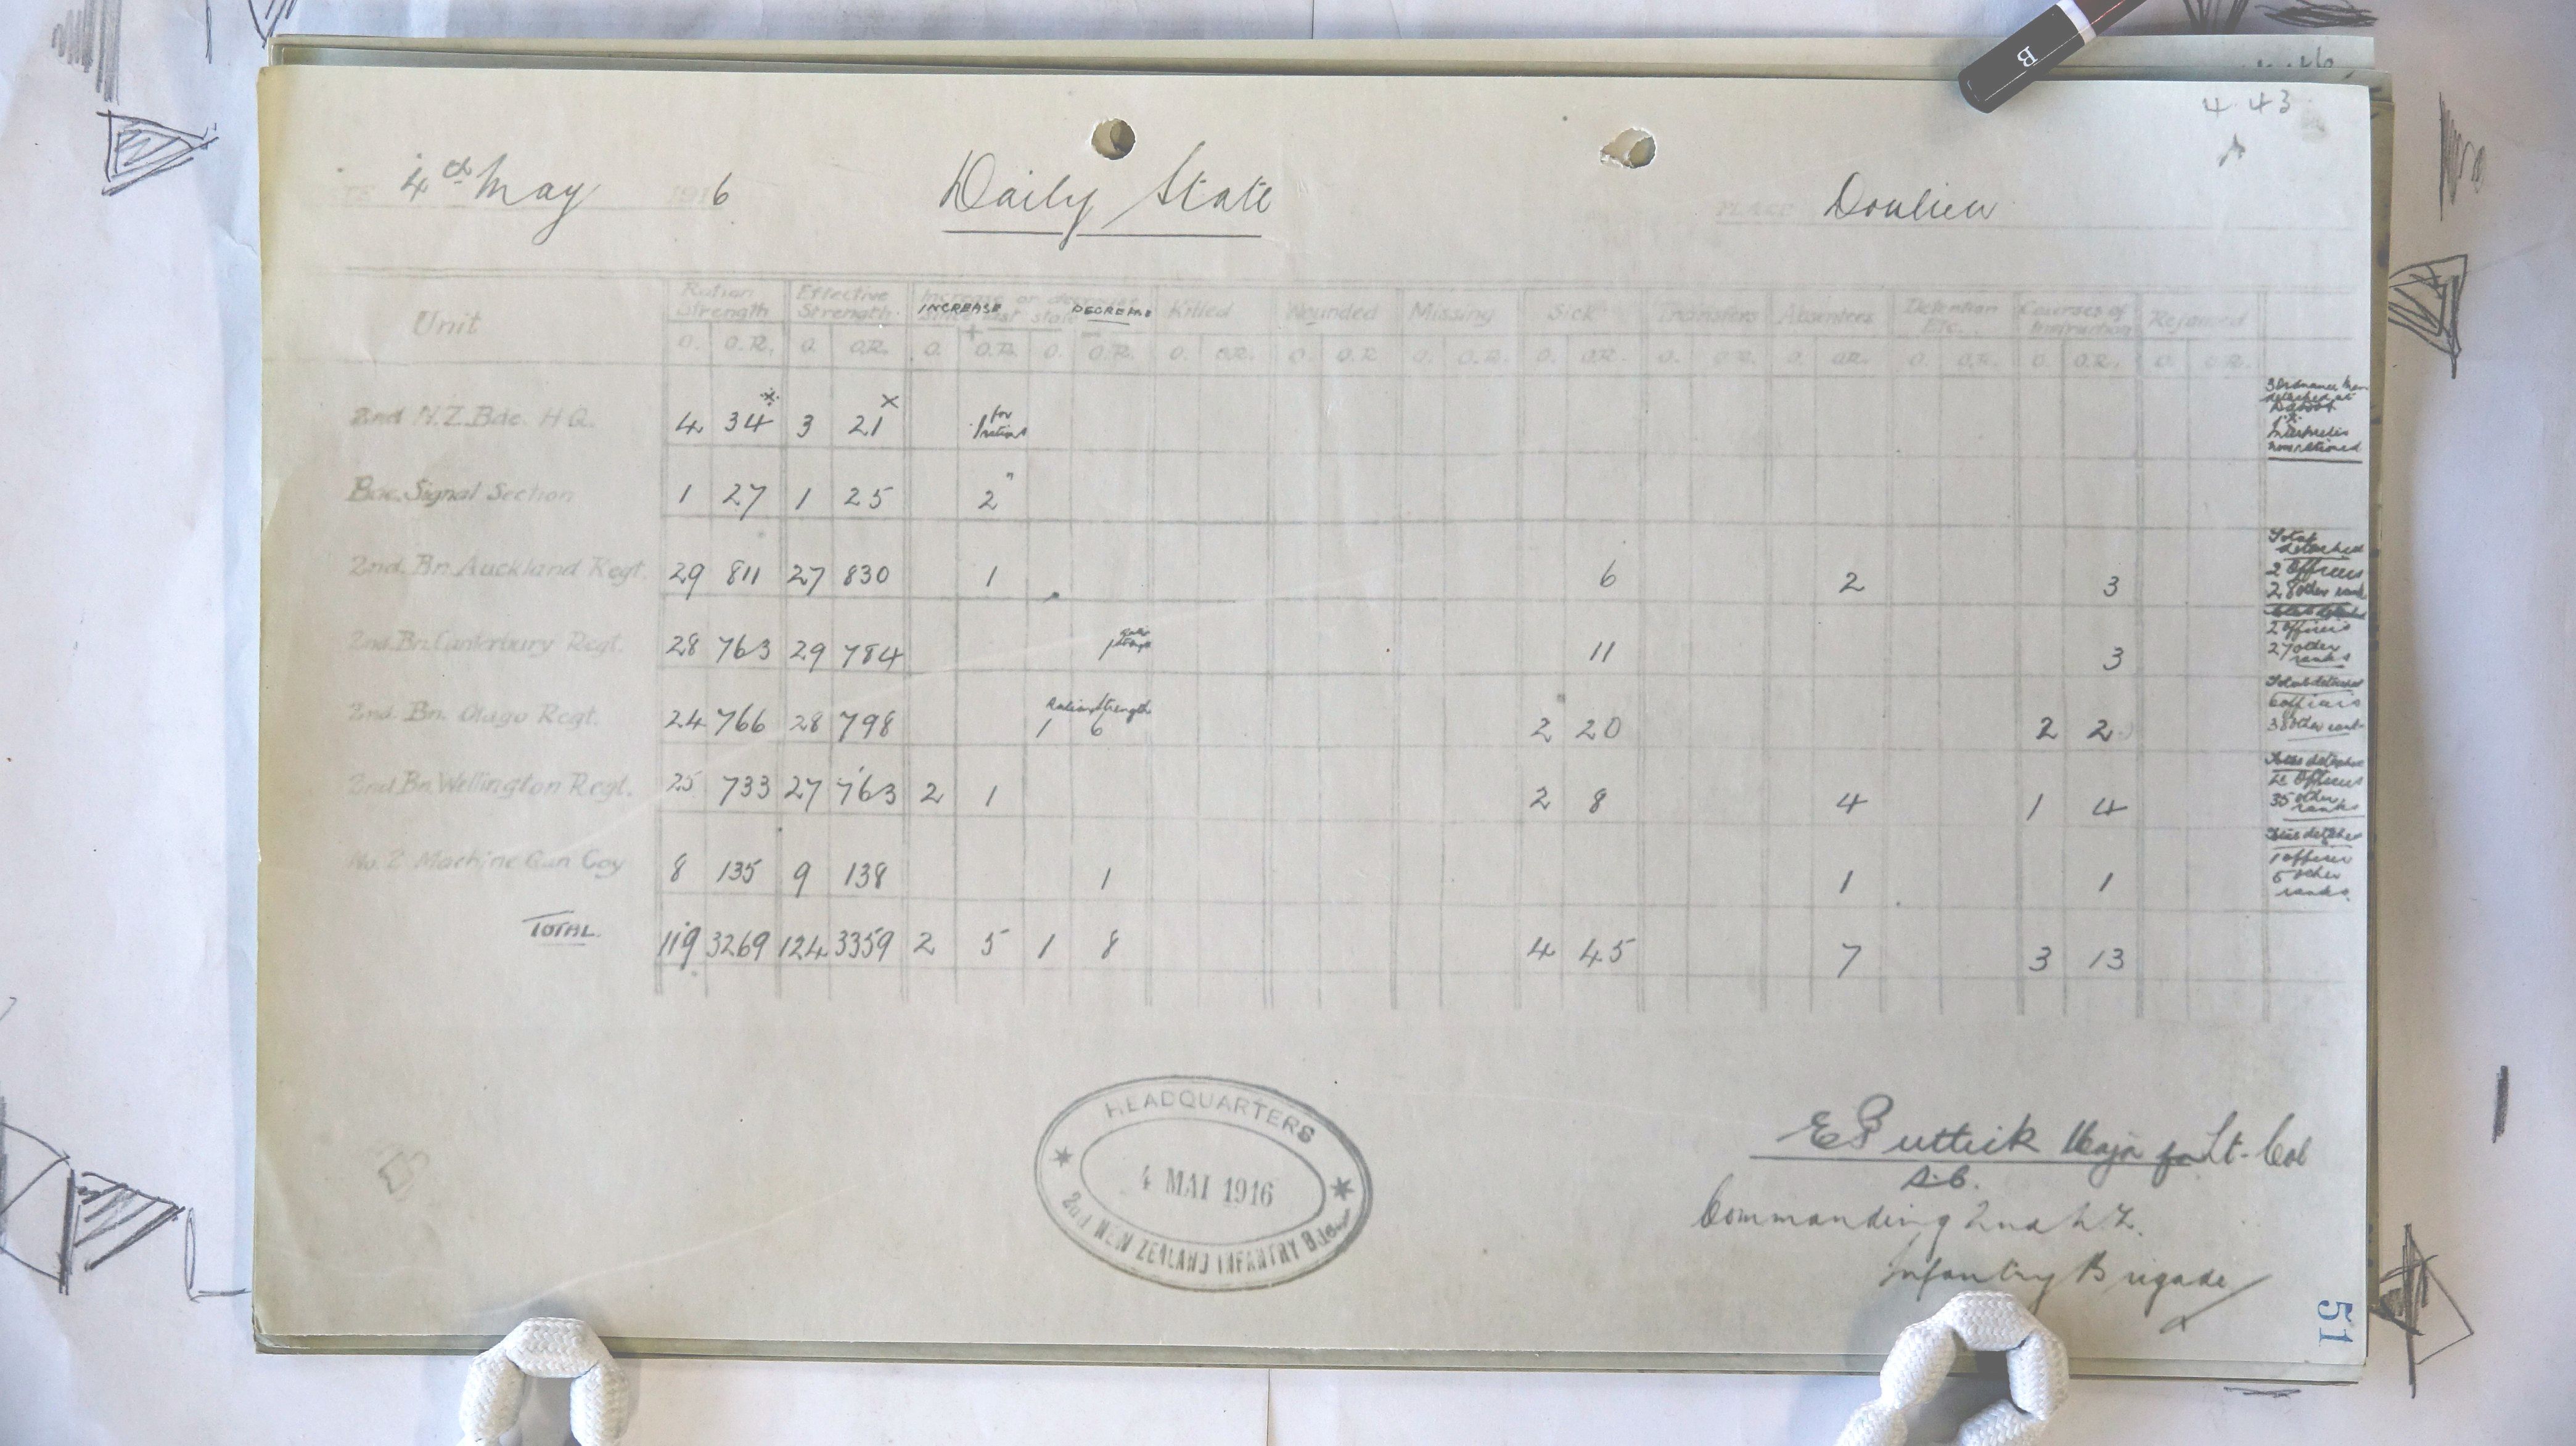 B
4 43
DATE 4th May 1916 Daily State PLACE Doulieu
Unit Ration Strength Effective Strength Increase or decrease since last state INCREASE + DECREASE - Killed Wounded Missing Sick Transfers Absentees Detention Etc. Courses of Instruction Rejoined
O. O.R. O. O.R. O. O.R. O. O.R. O. O.R. O. O.R. O. O.R. O. O.R. O. O.R. O. O.R. O. O.R. O. O.R. O. O.R.
2nd N.Z. Bde. H.Q. 4 34 x 3 21 x 1 for rations
3 Ordnance men
detached at
1 x
Interpreter
non rationed
Bde. Signal Section 1 27 1 25 2 "
2nd. Bn. Auckland Regt. 29 811 27 830 1 6 2 3
Total detached
2 Officers
28 other rank
2nd. Bn. Canterbury Regt. 28 763 29 784 1 11 3
2 Officers
27 other
ranks
2nd. Bn. Otago Regt. 24 766 28 798 Ration Strength 1 6 2 20 2 2
Total detached
6 officers
38 other rank
2nd Bn. Wellington Regt. 25 733 27 763 2 1 2 8 4 1 4
Officers
35 other
ranks
No. 2 Machine Gun Coy 8 135 9 138 1 1 1
1 officer
5 other
ranks
TOTAL. 119 3269 124 3359 2 5 1 8 4 45 7 3 13
HEADQUARTERS
4 MAI 1916
2nd NEW ZEALAND INFANTRY Bde
E Puttick Major for Lt-Col
Commanding 2nd N.Z.
Infantry Brigade
51